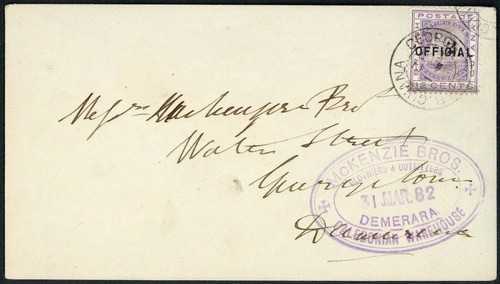 POSTAGE
OFFICIAL
12 CENTS
GEORGE
GUIANA
Messrs McKenzie Bros
Water Street
Georgetown
Demerara
McKENZIE BROS.
CLOTHIERS & OUTFITTERS
31 MAR. 82
DEMERARA
CALEDONIAN WAREHOUSE